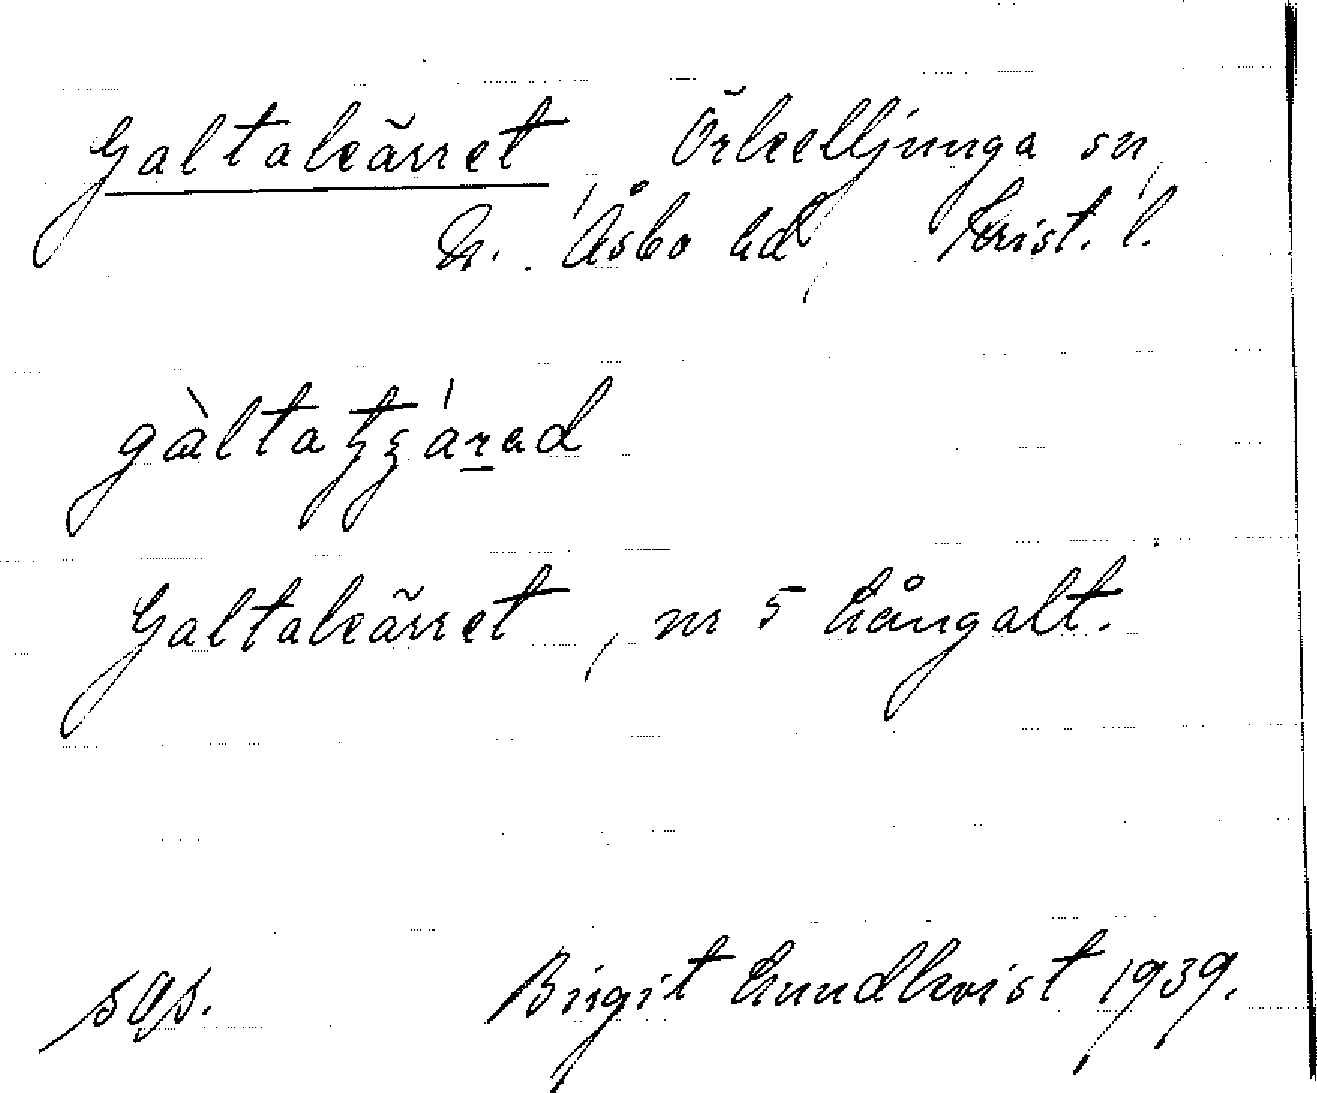 Galtakärret Örkelljunga sn,
N. Åsbo hd, Krist. l.
gàltatzárad
Galtakärret, nr 5 Långalt.
sgs. Birgit Lundkvist 1939.